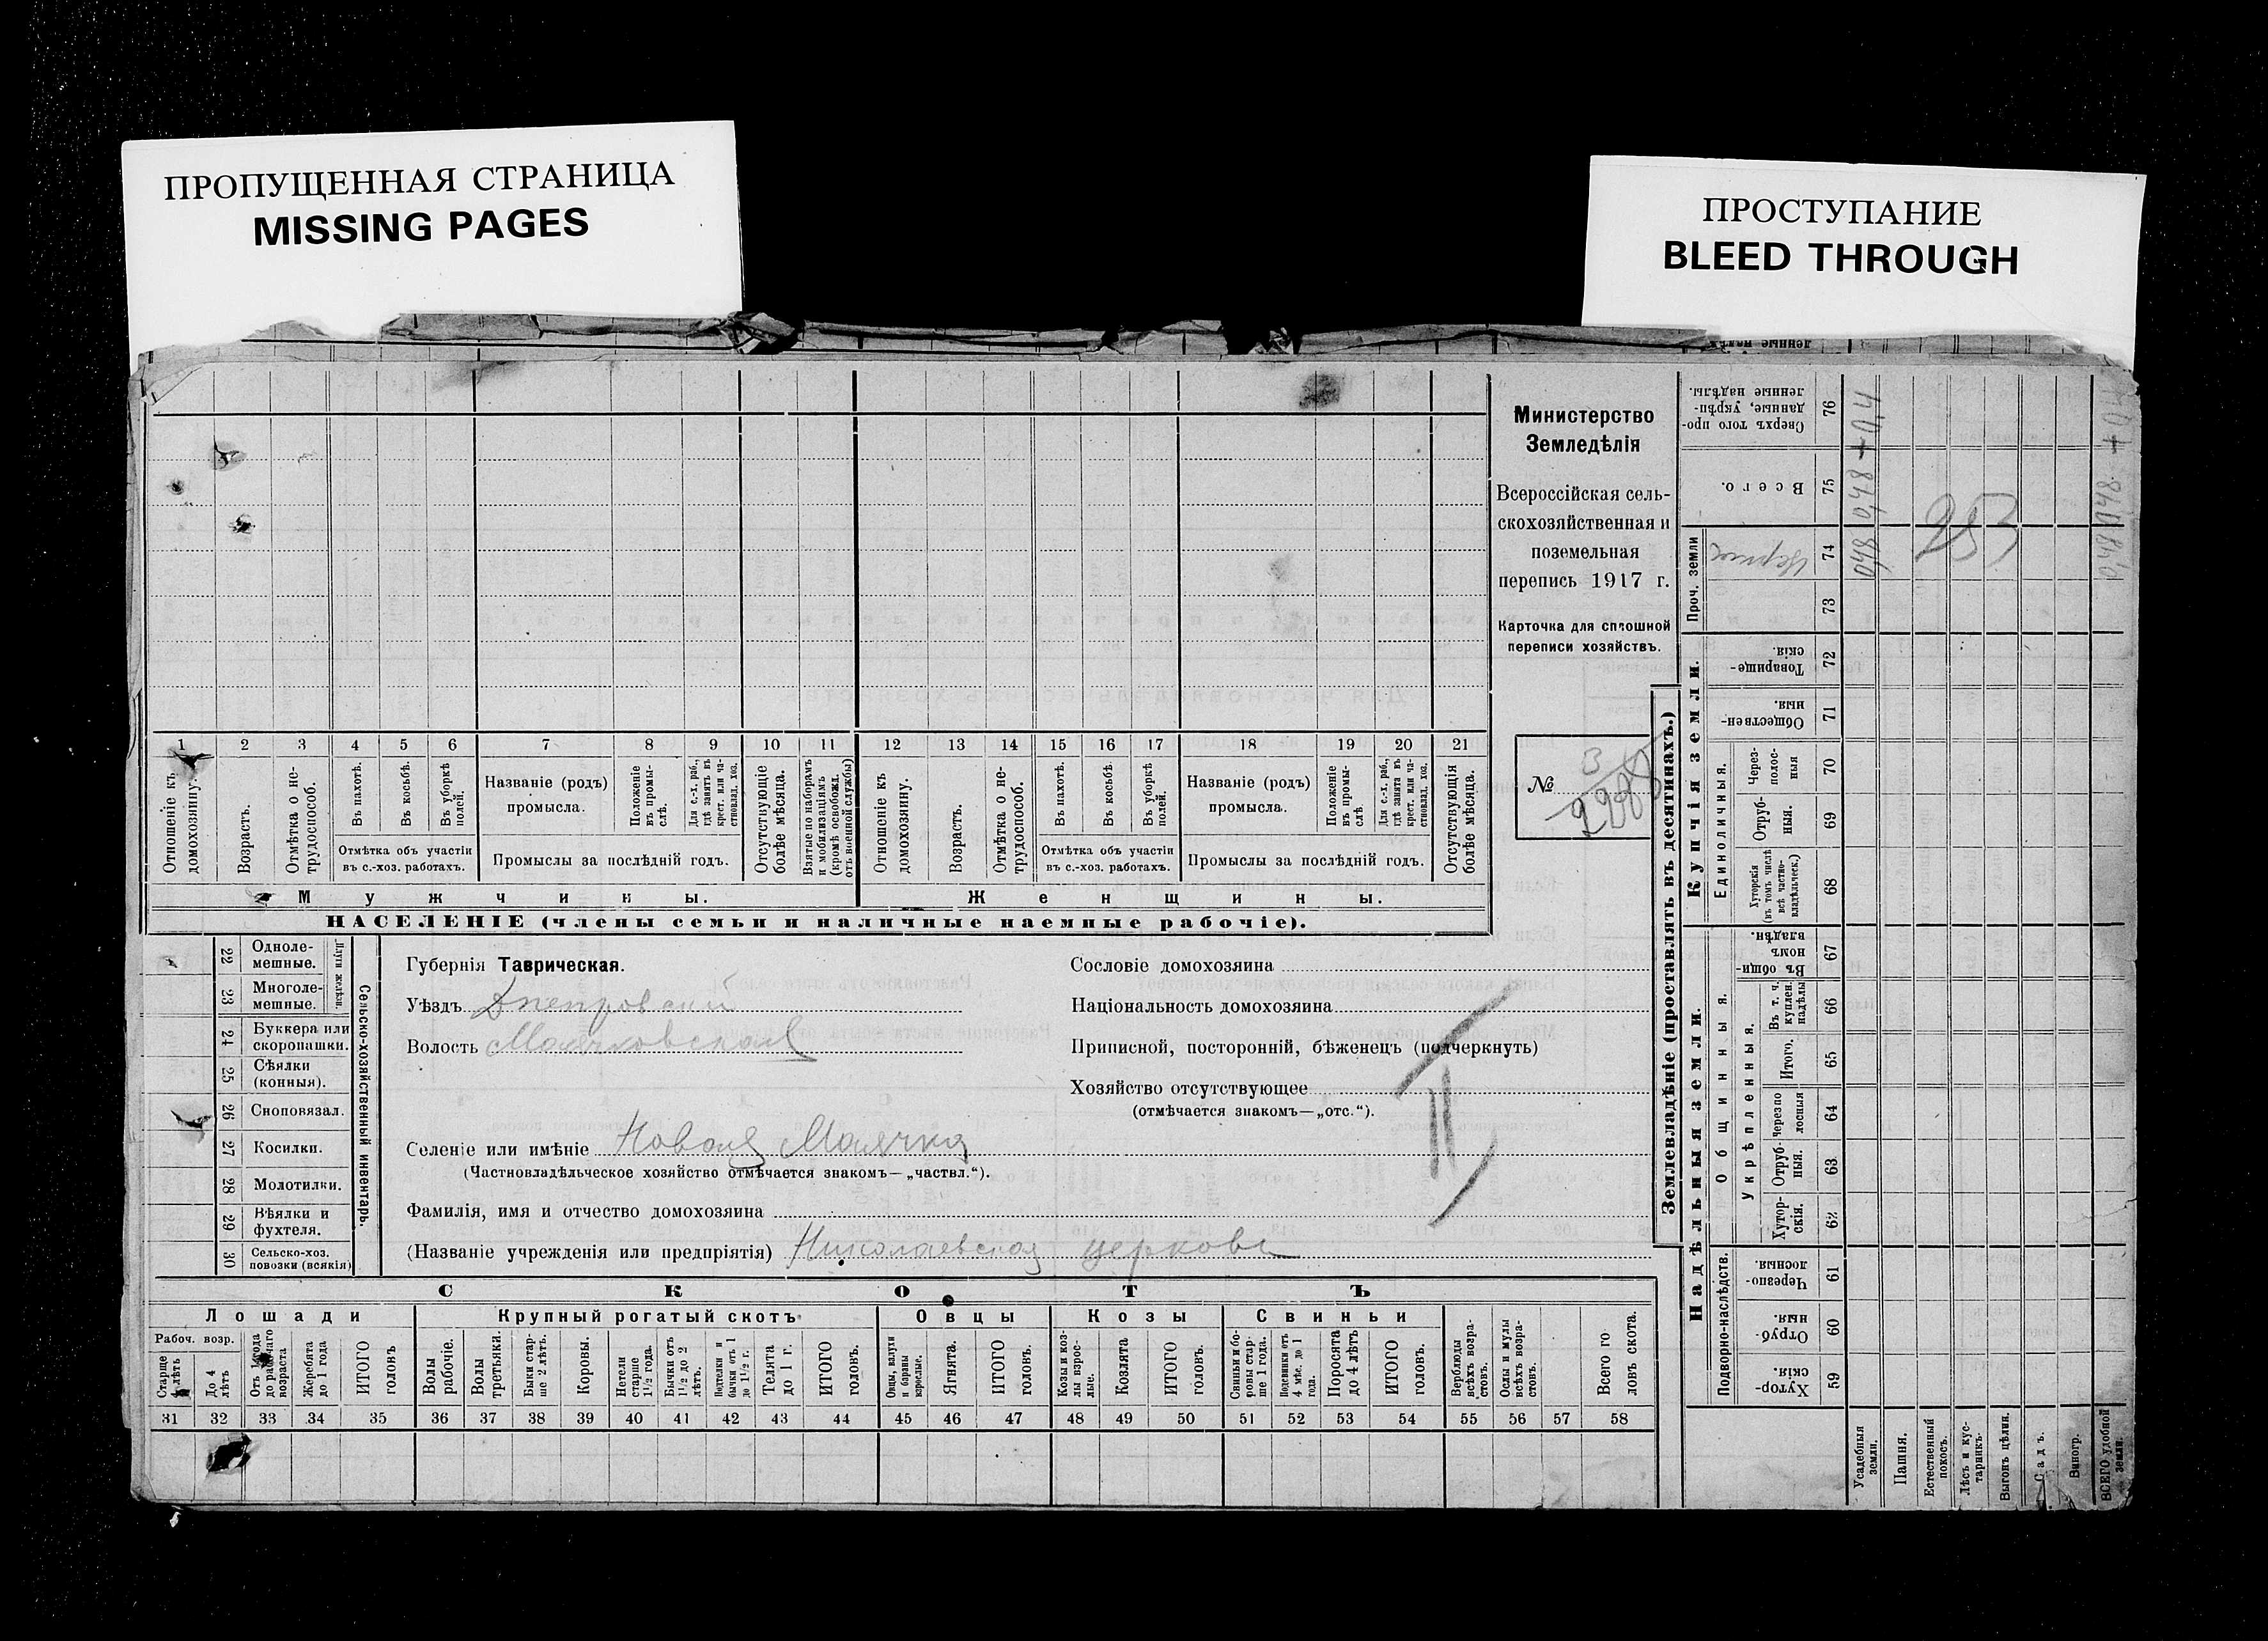 ПРОПУЩЕННАЯ СТРАНИЦА
MISSING PAGES
ПРОСТУПАНИЕ
BLEED THROUGH
Министерство
Земледѣлія
Всероссійская сель-
скохозяйственная и
поземельная
перепись 1917 г.
Карточка для сплошной
переписи хозяйствъ.
№ 3
1 2 3 4 5 6 7 8 9 10 11 12 13 14 15 16 17 18 19 20 21
Отношеніе къ домохозяину.
Возрастъ.
Отмѣтка о не-трудоспособ.
Въ пахотѣ.
Въ косьбѣ.
Въ уборкѣ полей.
Названіе (родъ)
промысла.
Положеніе въ промы-слѣ
Для с.-х. раб., гдѣ занятъ въ крест. или ча-стновлад. хоз.
Отсутствующіе болѣе мѣсяца.
Взятые по наборамъ и мобилизаціямъ (кромѣ освобожд. отъ военной службы)
Отношеніе къ домохозяину.
Возрастъ.
Отмѣтка о не-трудоспособ.
Въ пахотѣ.
Въ косьбѣ.
Въ уборкѣ полей.
Названіе (родъ)
промысла.
Положеніе въ промы-слѣ
Для с.-х. раб., гдѣ занятъ въ крест. или ча-стновлад. хоз.
Отсутствующія болѣе мѣсяца.
Отмѣтка объ участіи
въ с.-хоз. работахъ.
Промыслы за послѣдній годъ.
Отмѣтка объ участіи
въ с.-хоз. работахъ.
Промыслы за послѣдній годъ.
Мужчины.
Женщины.
НАСЕЛЕНІЕ (члены семьи и наличные наемные рабочіе).
22 Одноле-мешные.
23 Многоле-мешные.
Плуги желѣзн.
24 Буккера или скоропашки.
25 Сѣялки (конныя).
26 Сноповязал.
27 Косилки.
28 Молотилки.
29 Вѣялки и фухтеля.
30 Сельско-хоз. повозки (всякія)
Сельско-хозяйственный инвентарь.
Губернія Таврическая.
Уѣздъ Днепровский
Волость Маячковская
Селеніе или имѣніе Новая Маячка
(Частновладѣльческое хозяйство отмѣчается знакомъ—„частвл.“).
Фамилія, имя и отчество домохозяина
(Названіе учрежденія или предпріятія) Николаевская церковь
Сословіе домохозяина
Національность домохозяина
Приписной, посторонній, бѣженецъ (подчеркнуть)
Хозяйство отсутствующее
(отмѣчается знакомъ—„отс.“).
II
СКОТЪ
Лошади
Крупный рогатый скотъ
Овцы
Козы
Свиньи
Рабоч. возр.
Старше 4 лѣтъ
До 4 лѣтъ
Отъ 1 года до рабочаго возраста
Жеребята до 1 года
ИТОГО головъ
Волы рабочіе.
Волы третьяки.
Быки стар-ше 2 лѣтъ.
Коровы.
Нетели старше 1½ года.
Бычки отъ 1½ до 2 лѣтъ.
Подтелки и бычки отъ 1 до 1½ г.
Телята до 1 г.
ИТОГО головъ.
Овцы, валухи и бараны взрослые.
Ягнята.
ИТОГО головъ.
Козы и коз-лы взрос-лые.
Козлята
ИТОГО головъ.
Свиньи и бо-ровы стар-ше 1 года.
Подсвинки отъ 4 мѣс. до 1 года.
Поросята до 4 лѣтъ
ИТОГО головъ.
Верблюды всѣхъ возра-стовъ.
Ослы и мулы всѣхъ возра-стовъ.
Всего го ловъ скота.
31 32 33 34 35 36 37 38 39 40 41 42 43 44 45 46 47 48 49 50 51 52 53 54 55 56 57 58
Землевладѣніе (проставлять въ десятинахъ.)
Надѣльныя земли.
Купчія земли.
Проч. земли
Подворно-наслѣдств.
Общинныя.
Укрѣпленныя.
Единоличныя.
Сверхъ того про-данные, укрѣп-ленные надѣлы. 76
Всего. 75
74
73
Товарище-скія. 72
Обществен-ныя. 71
Через-полос-ныя 70
Отруб-ныя. 69
Хуторскія (въ томъ числѣ всѣ частно-владѣльческ.) 68
Въ общин-номъ владѣн. 67
Въ т. ч. куплен. надѣлы 66
Итого. 65
Черезпо лосныя 64
Отруб-ныя. 63
Хутор-скія. 62
Черезпо-лосныя. 61
Отруб-ныя 60
Хутор-скія. 59
Усадебныя земли.
Пашня.
Естественный покосъ.
Лѣсъ и кус-тарникъ.
Выгонъ цѣлин.
Садъ.
Виногр.
ВСЕГО удобной земли.
048 0,48 + 0,4
253